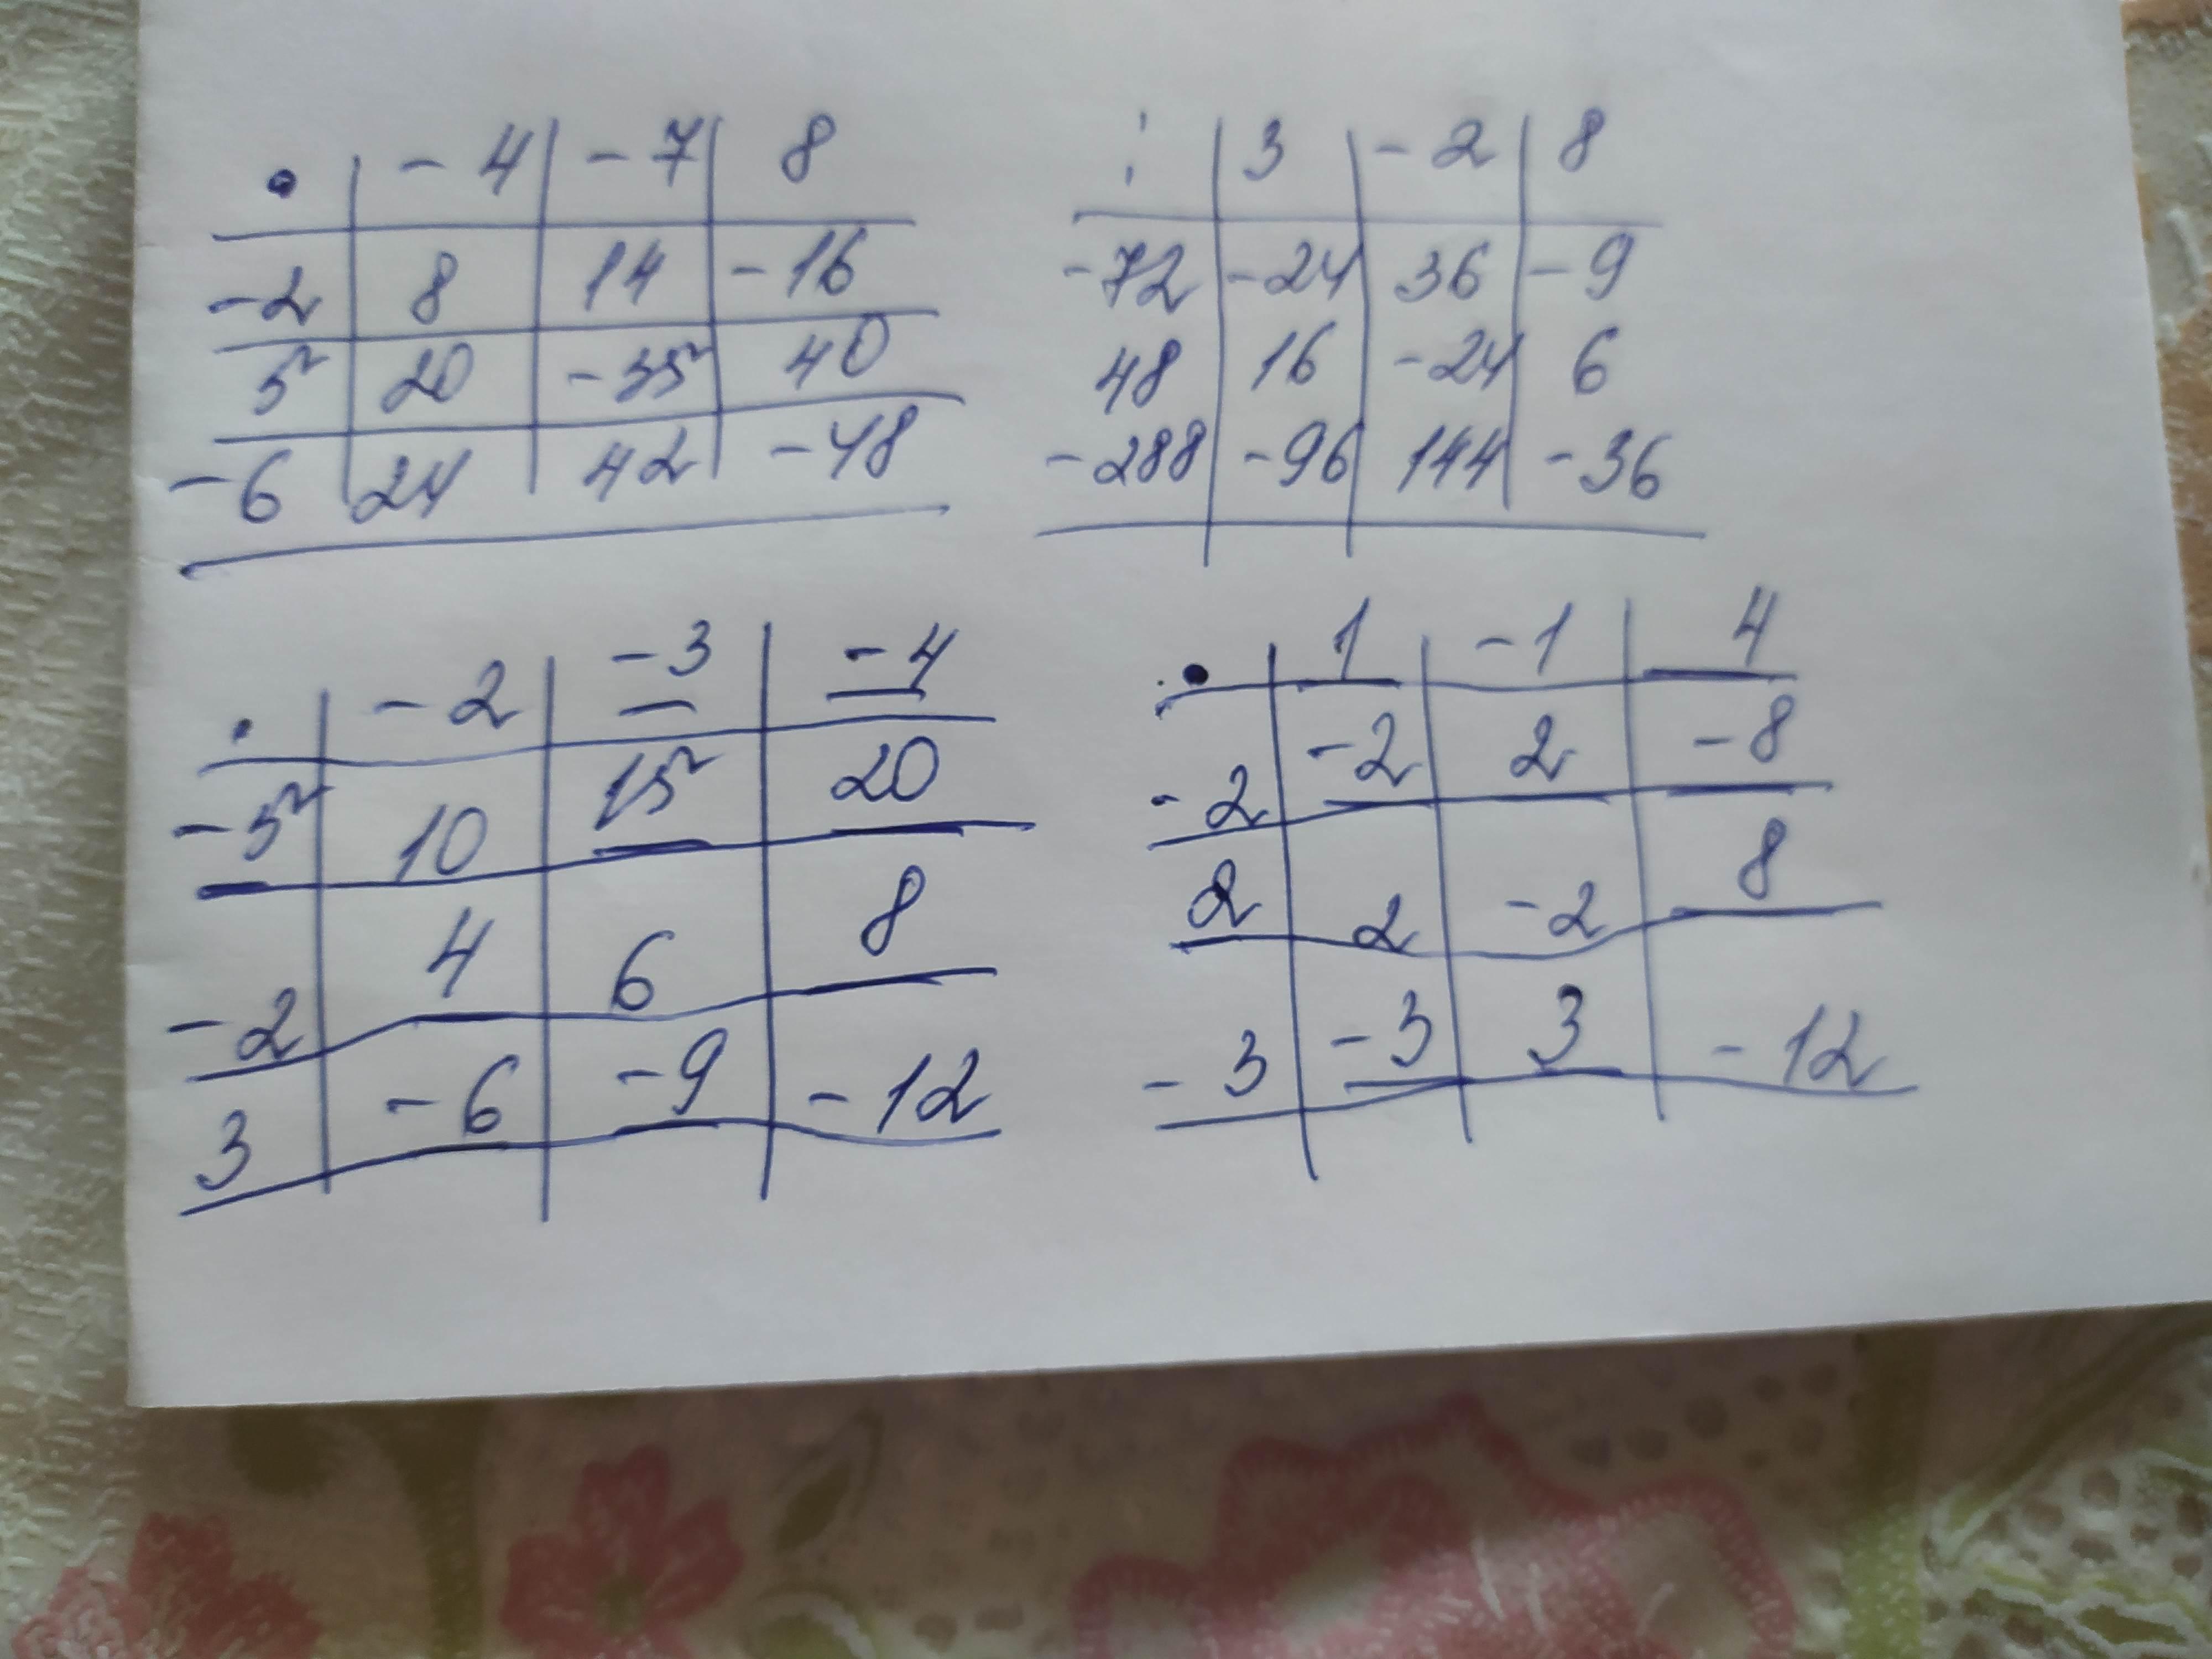 • -4 -7 8
-2 8 14 -16
5 20 -35 40
-6 24 42 -48
: 3 -2 8
-72 -24 36 -9
48 16 -24 6
-288 -96 144 -36
. -2 -3 -4
-5 10 15 20
-2 4 6 8
3 -6 -9 -12
• 1 -1 4
-2 -2 2 -8
2 2 -2 8
-3 -3 3 -12